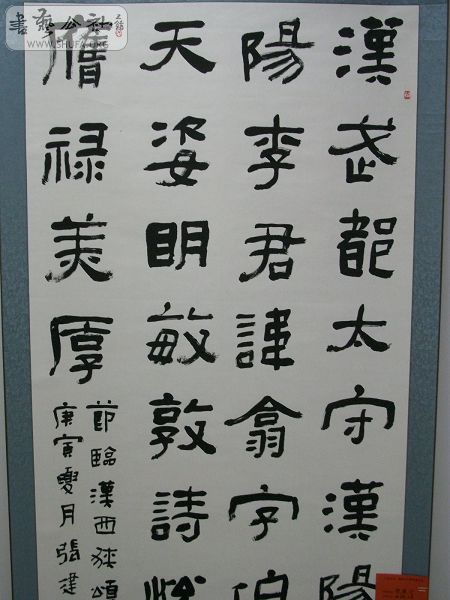 漢武都太守漢陽
陽李君諱翕字伯
天姿明敏敦詩悅
膺禄美厚
節臨漢西狹頌
庚寅夏月張建
書藝公社
WWW.SHUFA.ORG